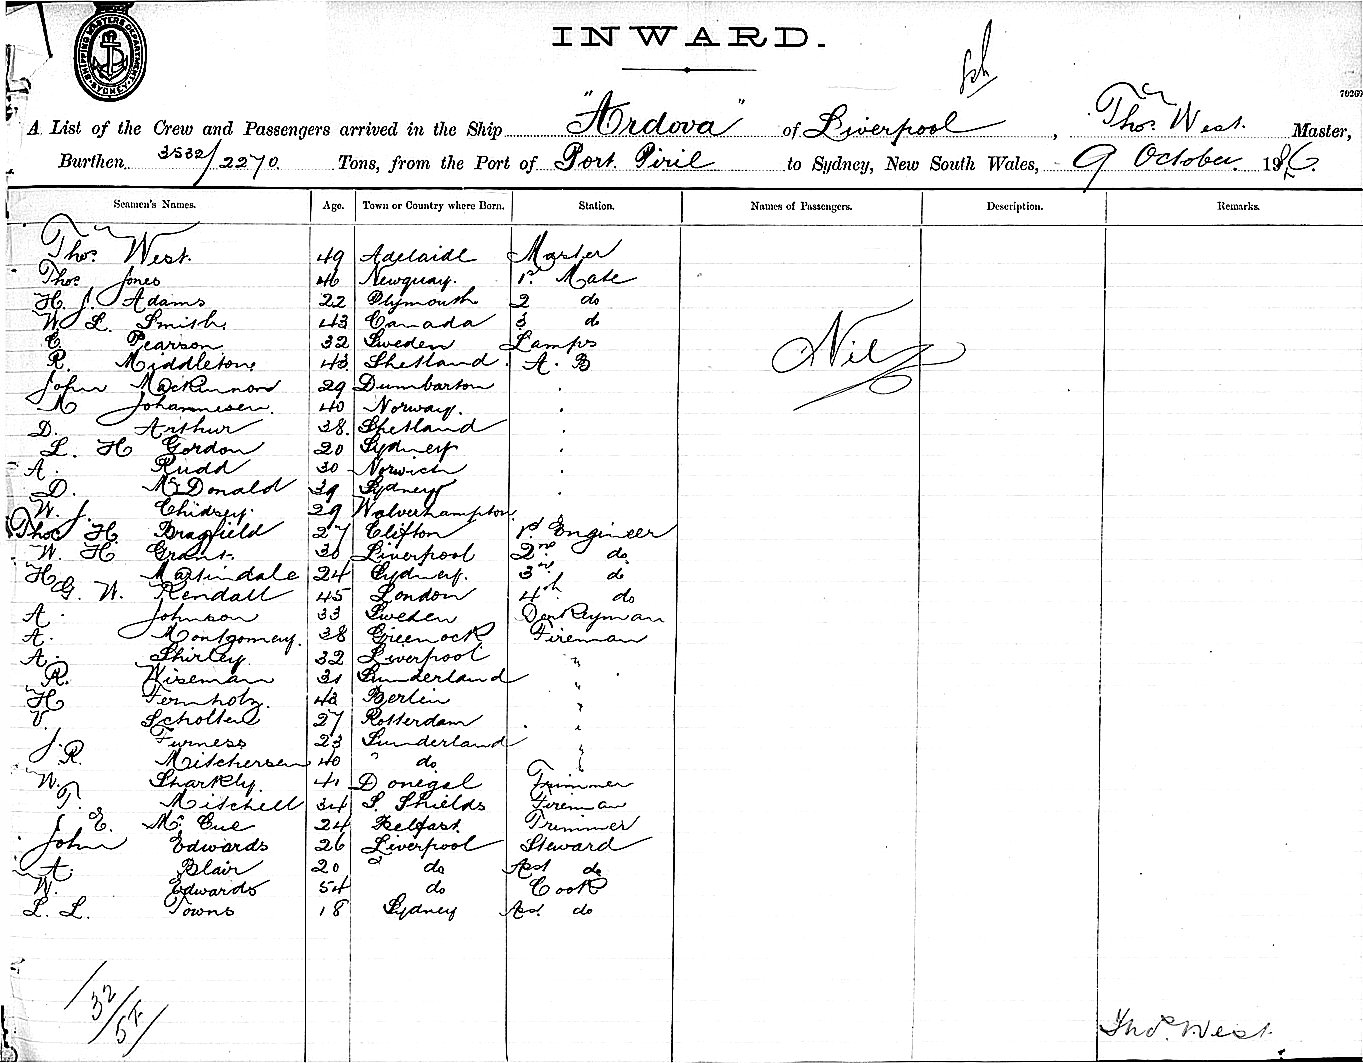 SHIPPING MASTERS DEPARTMENT SYDNEY
INWARD.
70269
A List of the Crew and Passengers arrived in the Ship "Ardova" of Liverpool, Thos West. Master,
Burthen 3532/2270. Tons, from the Port of Port Piril to Sydney, New South Wales, 9 October. 19
Seamen's Names. Age. Town or Country where Born. Station. Names of Passengers. Description. Remarks.
Thos West. 49 Adelaide Master
Thos Jones 46 Newquay. 1st Mate
H J. Adams 22 Plymouth 2 do
W L. Smith 43 Canada 3 do
C Pearson 32 Sweden Lamps
R. Middleton 43 Shetland A. B
John MacKinnon 29 Dumbarton
M Johannesen. 40 Norway.
D. Arthur 38. Shetland
L. H Gordon 20 Sydney
A. Rudd 30 Norwich
D. McDonald 39 Sydney
W. J. Chidsey. 29 Wolverhampton
Thos H 27 Clifton 1st Engineer
W. H Grant. 30 Liverpool 2nd do
H Martindale 24 Sydney. 3rd do
G. W. Kendall 45 London 4th do
A. Johnson 33 Sweden Donkeyman
A. Montgomery. 38 Greenock Fireman
A. Shirley. 32 Liverpool "
R. Wiseman 31 Sunderland "
H Fernholz. 43 Berlin "
V. Scholten 27 Rotterdam "
J. Furness 23 Sunderland "
R. 40 " do "
W. Sharkly. 41 Donegal Trimmer
T. Mitchell 34 S. Shields Fireman
J E. McCue 24 Belfast. Trimmer
John Edwards 26 Liverpool Steward
A. Blair 20 " do Asst do
W. Edwards 54 do Cook
L. L. Towns 18 Sydney Asst. do
Nil
32/
Thos. West.